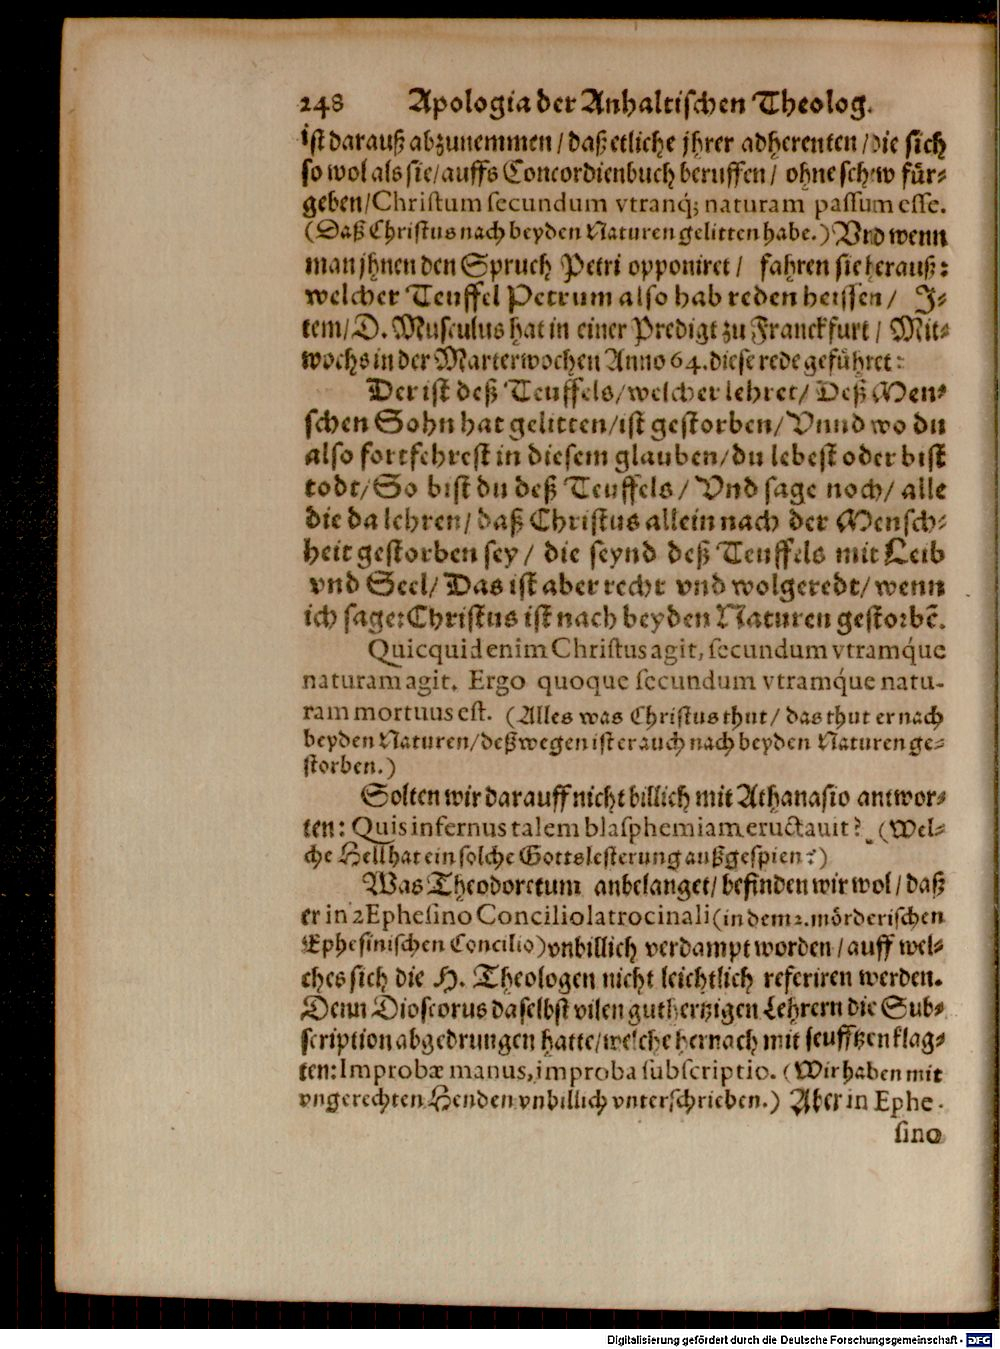 248 Apologia der Anhaltischen Theolog.
ist darauß abzunemmen / daß etliche jhrer adherenten / die sich
so wol als sie / auffs Concordienbuch beruffen / ohne schew für⸗
geben / Christum secundum vtranq́; naturam passum esse.
(Daß Christus nach beyden Naturen gelitten habe.) Vnd wenn
man jhnen den Spruch Petri opponiret / fahren sie herauß:
welcher Teuffel Petrum also hab reden heissen / J⸗
tem / D. Musculus hat in einer Predigt zu Franckfurt / Mit⸗
wochs in der Marterwochen Anno 64. diese rede geführet:
Der ist deß Teuffels / welcher lehret / Deß Men⸗
schen Sohn hat gelitten / ist gestorben / Vnnd wo du
also fortfehrest in diesem glauben / du lebest oder bist
todt / So bist du deß Teuffels / Vnd sage noch / alle
die da lehren / daß Christus allein nach der Mensch⸗
heit gestorben sey / die seynd deß Teuffels mit Leib
vnd Seel / Das ist aber recht vnd wolgeredt / wenn
ich sage: Christus ist nach beyden Naturen gestorbē.
Quicquid enim Christus agit, secundum vtramq́ue
naturam agit. Ergo quoque secundum vtramq́ue natu-
ram mortuus est. (Alles was Christus thut / das thut er nach
beyden Naturen / deßwegen ist er auch nach beyden Naturen ge⸗
storben.)
Solten wir darauff nicht billich mit Athanasio antwor⸗
ten: Quis infernus talem blasphemiam eructauit? (Wel⸗
che Hell hat ein solche Gottslesterung außgespien?)
Was Theodoretum anbelanget / befinden wir wol / daß
er in 2 Ephesino Concilio latrocinali (in dem 2. mörderischen
Ephesinischen Concilio) vnbillich verdampt worden / auff wel⸗
ches sich die H. Theologen nicht leichtlich referiren werden.
Denn Dioscorus daselbst vilen guthertzigen Lehrern die Sub⸗
scription abgedrungen hatte / welche hernach mit seufftzen klag⸗
ten: Improbæ manus, improba subscriptio. (Wir haben mit
vngerechten Henden vnbillich vnterschrieben.) Aber in Ephe-
sino
Digitalisierung gefördert durch die Deutsche Forschungsgemeinschaft - DFG